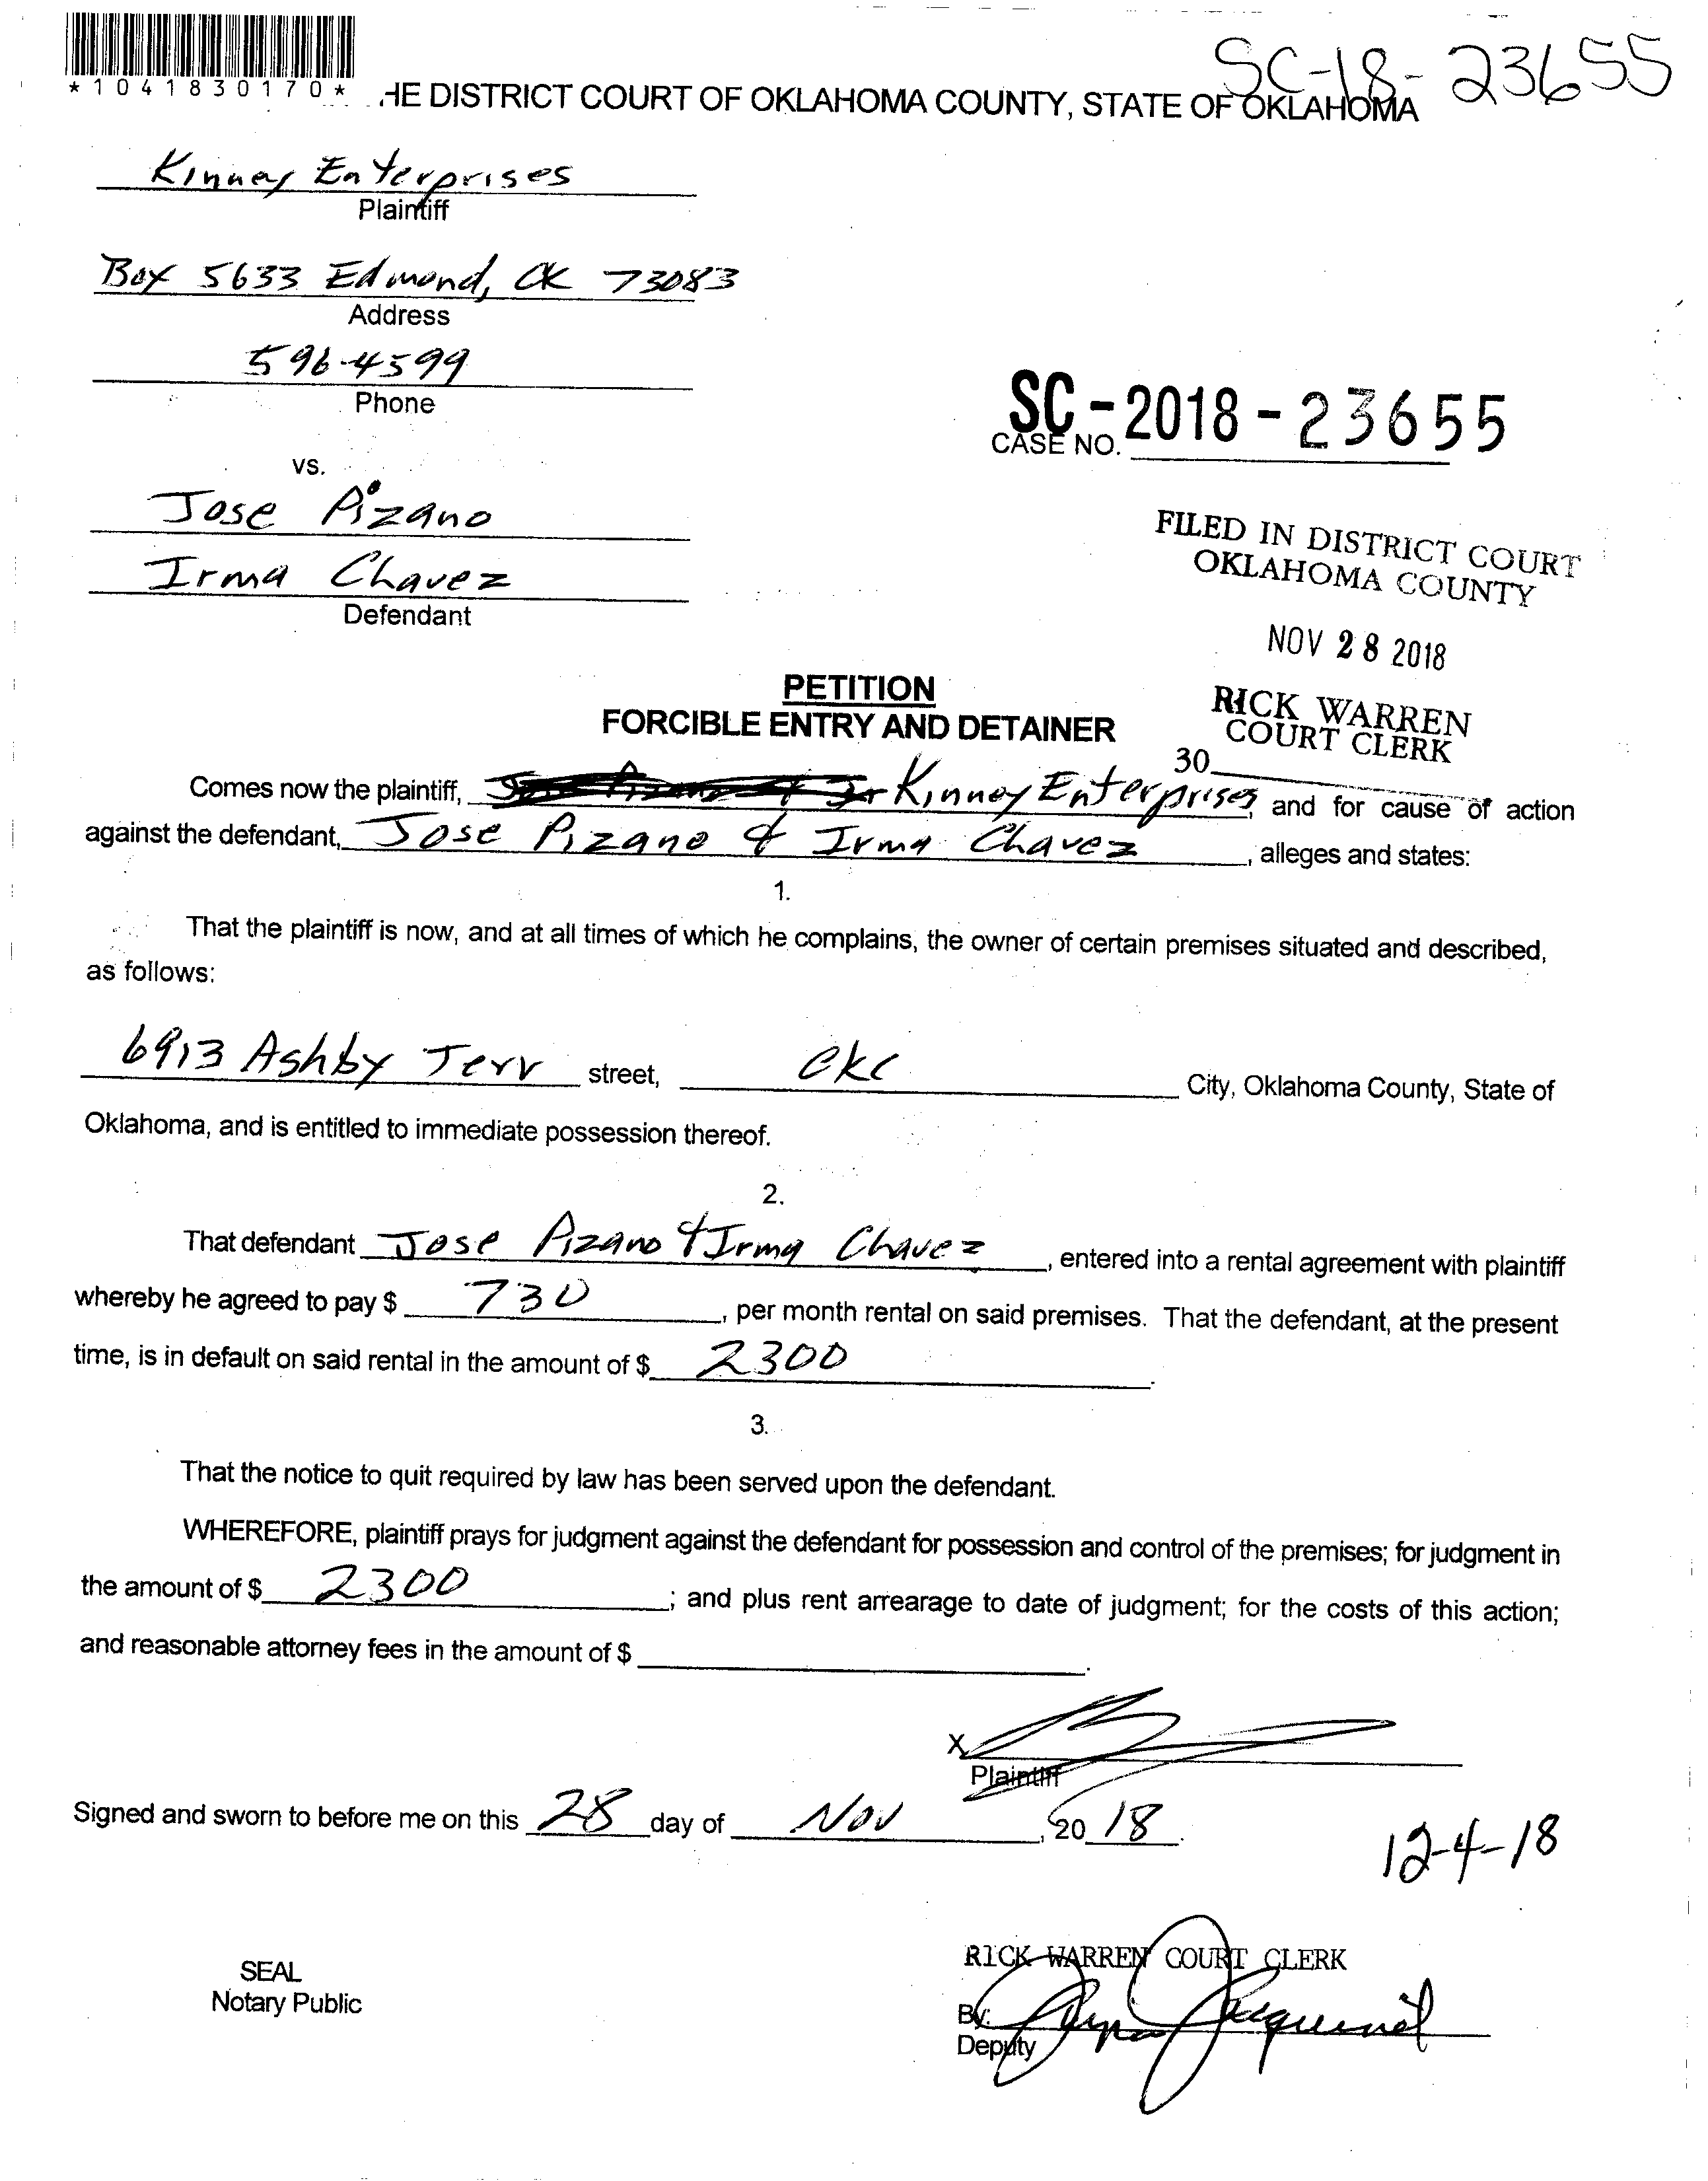 SC-18-23655
*1041830170*
HE DISTRICT COURT OF OKLAHOMA COUNTY, STATE OF OKLAHOMA
Kinney Enterprises
Plaintiff
Box 5633 Edmond, OK 73083
Address
596-4599
Phone
SC-2018-23655
CASE NO.
vs.
Jose Pizano
Irma Chavez
Defendant
FILED IN DISTRICT COURT
OKLAHOMA COUNTY
NOV 28 2018
RICK WARREN
COURT CLERK
30
PETITION
FORCIBLE ENTRY AND DETAINER
Comes now the plaintiff, Kinney Enterprises, and for cause of action
against the defendant, Jose Pizano & Irma Chavez, alleges and states:
1.
That the plaintiff is now, and at all times of which he complains, the owner of certain premises situated and described,
as follows:
6913 Ashby Terr street, OKC City, Oklahoma County, State of
Oklahoma, and is entitled to immediate possession thereof.
2.
That defendant Jose Pizano & Irma Chavez, entered into a rental agreement with plaintiff
whereby he agreed to pay $ 730, per month rental on said premises. That the defendant, at the present
time, is in default on said rental in the amount of $ 2300.
3.
That the notice to quit required by law has been served upon the defendant.
WHEREFORE, plaintiff prays for judgment against the defendant for possession and control of the premises; for judgment in
the amount of $ 2300; and plus rent arrearage to date of judgment; for the costs of this action;
and reasonable attorney fees in the amount of $ .
X
Plaintiff
Signed and sworn to before me on this 28 day of Nov, 20 18.
12-4-18
SEAL
Notary Public
RICK WARREN COURT CLERK
By:
Deputy